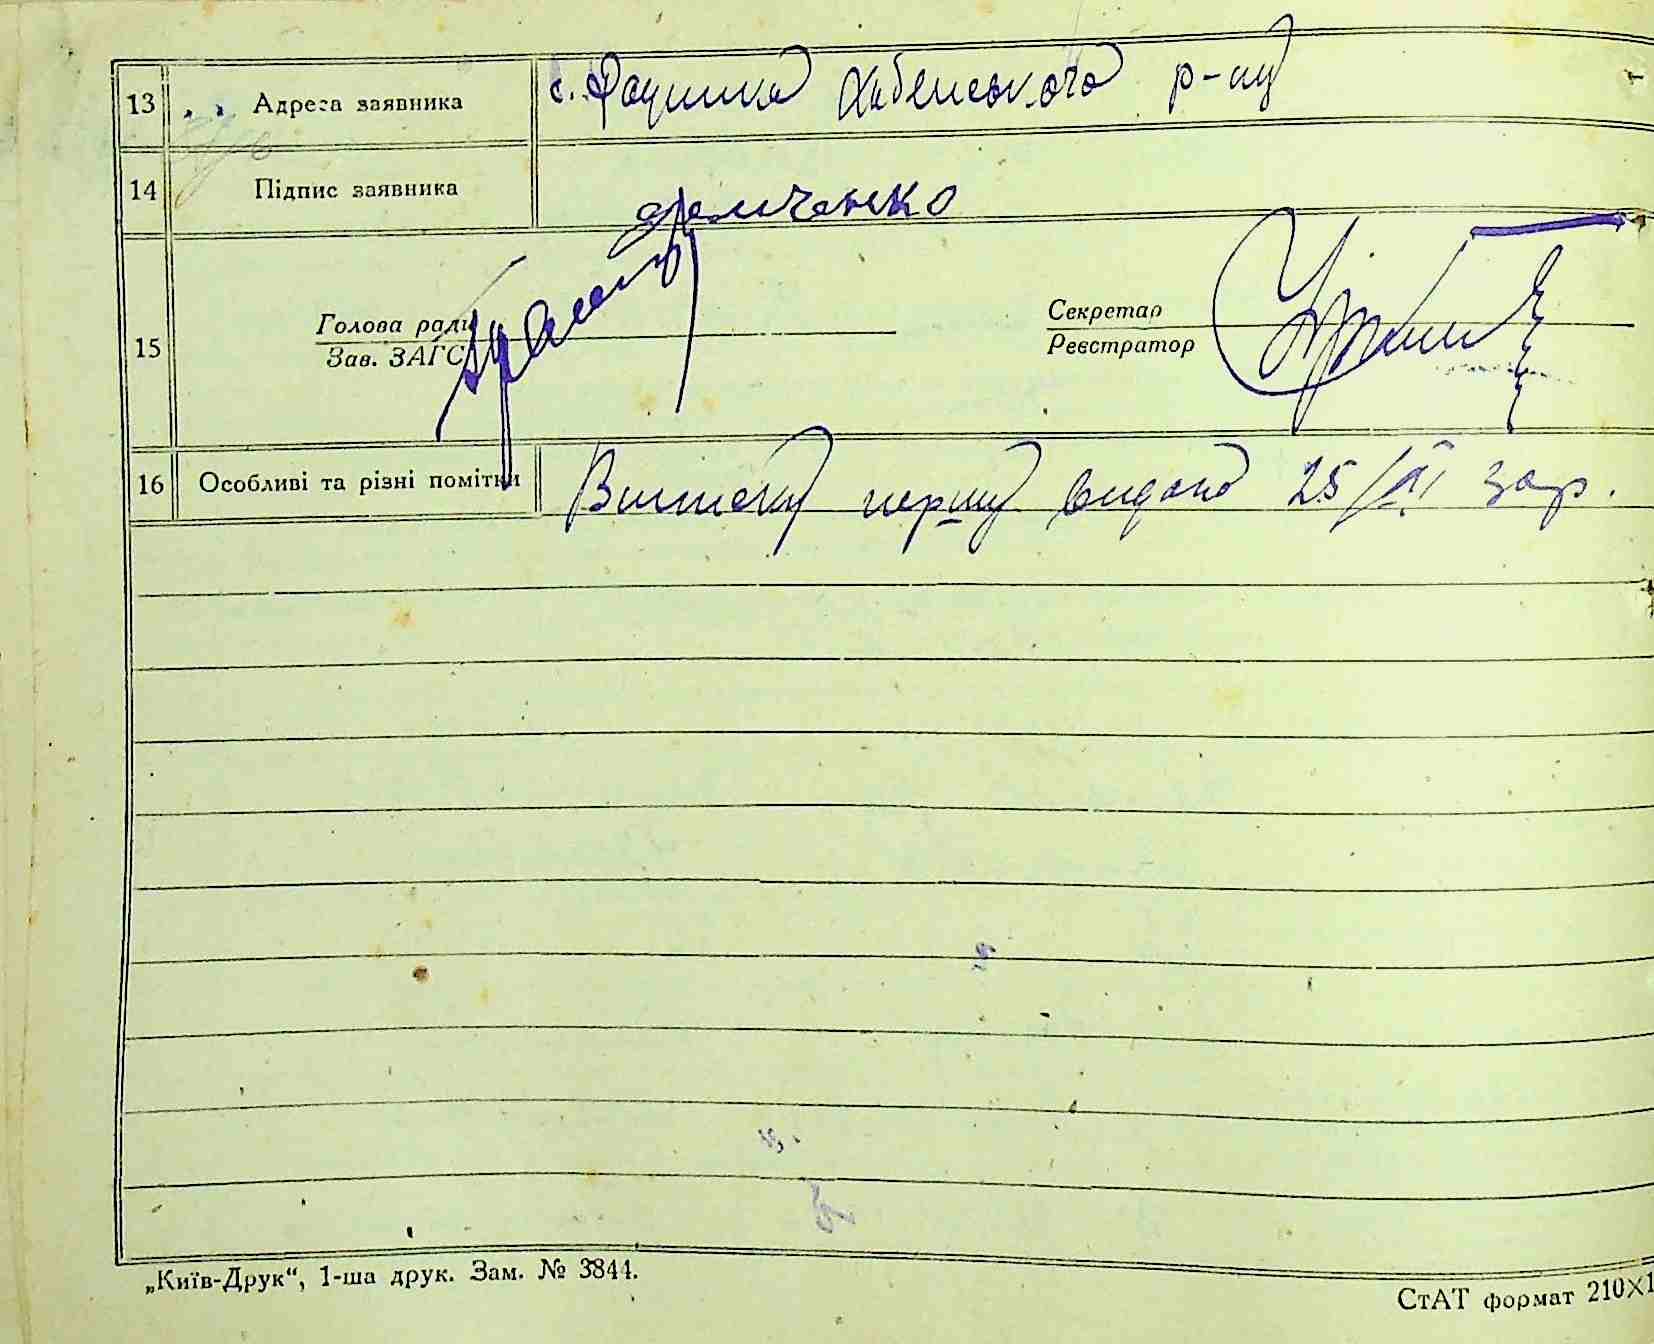 13 Адреса заявника с. Рацишка Хабенського р-ну
14 Підпис заявника Демченко
15 Голова ради
Зав. ЗАГС
Секретар
Реєстратор
16 Особливі та різні помітки Виписку першу видано 25/XI
„Київ-Друк“, 1-ша друк. Зам. № 3844.
СтАТ формат 210×1